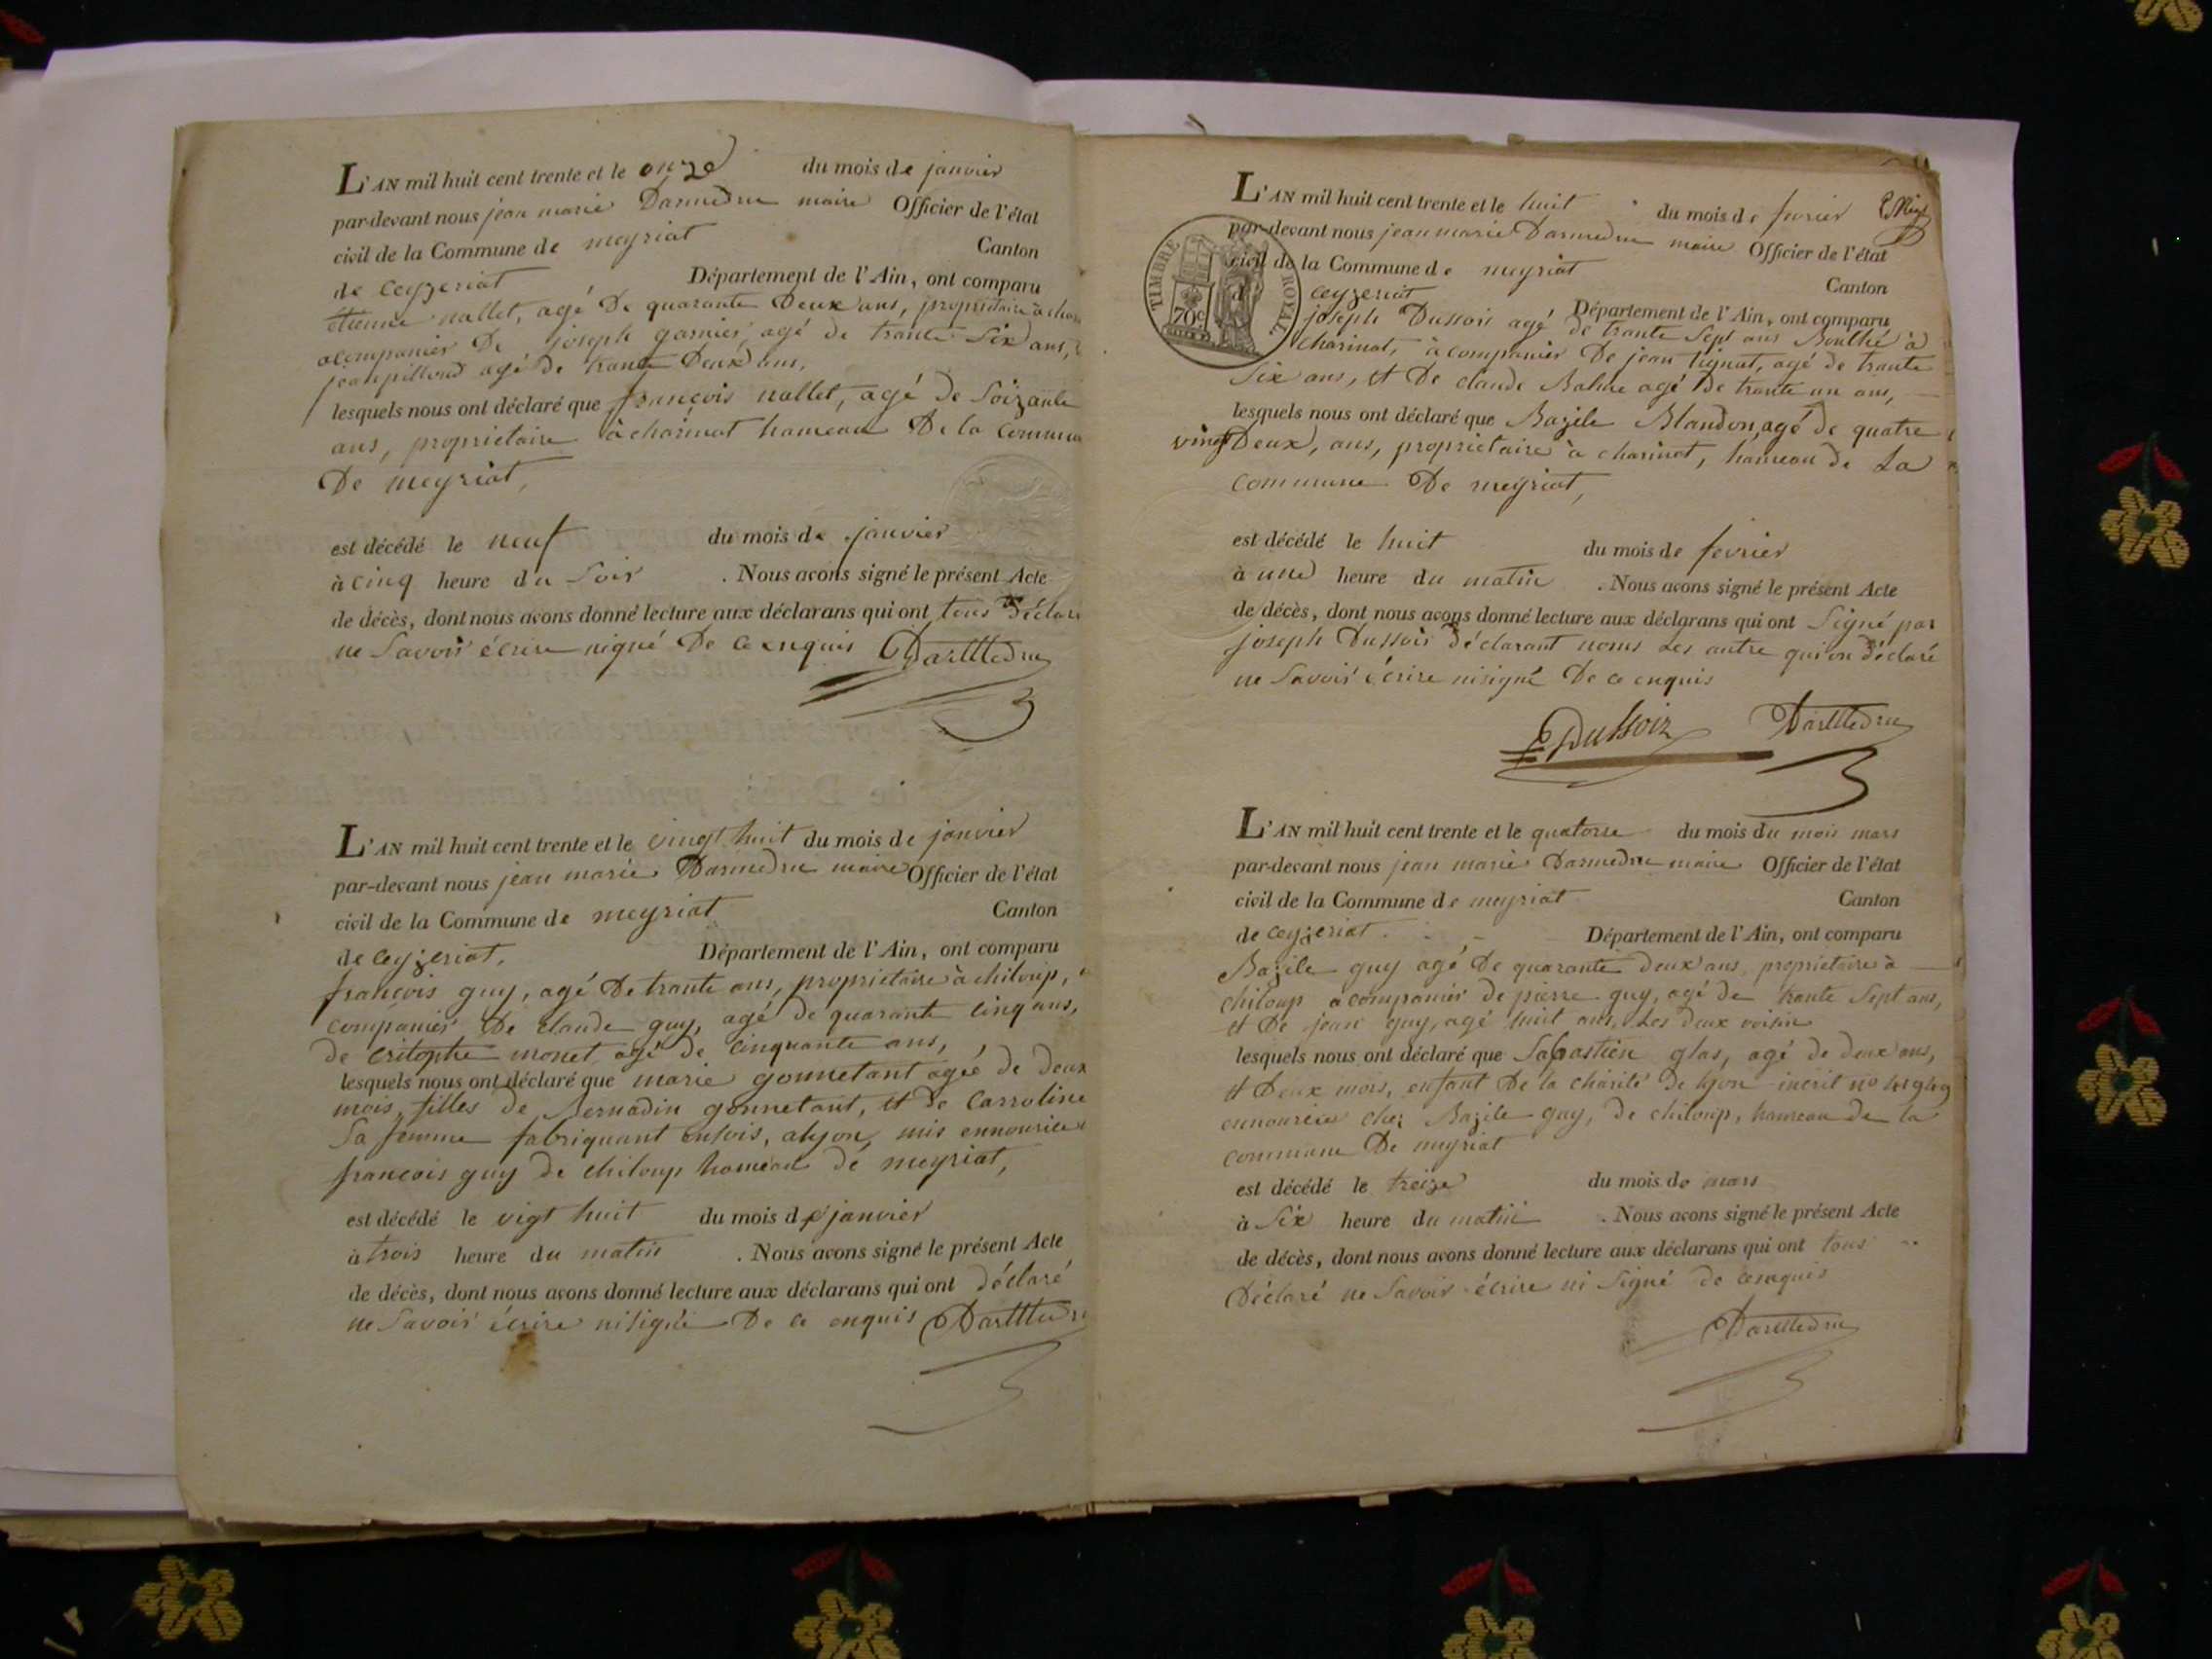 L'AN mil huit cent trente et le onze du mois de janvier
par-devant nous jean marie Darmedru maire Officier de l'état
civil de la Commune de meyriat Canton
de ceyzeriat Département de l'Ain, ont comparu
étienne nallet, agé De quarante Deux ans, propriétaire à
acompanier De joseph garnier, agé de trante Six ans,
jean pilloud agé De trante Deux ans,
lesquels nous ont déclaré que françois nallet, agé De Soizante
ans, proprietaire à charinat hameau De la commun
De meyriat,
est décédé le neuf du mois de janvier
à cinq heure du Soir . Nous avons signé le présent Acte
de décès, dont nous avons donné lecture aux déclarans qui ont tous Déclar
ne Savoir écrire nigné De ce enquis Darmedru
L'AN mil huit cent trente et le vingt huit du mois de janvier
par-devant nous jean marie Darmedru maire Officier de l'état
civil de la Commune de meyriat Canton
de ceyzeriat, Département de l'Ain, ont comparu
françois guy, agé De trante ans, proprietaire à chiloup,
companier De claude guy, agé de quarante cinq ans,
de critophe monet agé de cinquante ans,
lesquels nous ont déclaré que marie gonnetant agée de deux
mois, filles de Bernadin gonnetant, et de Carroline
Sa femme fabriquant ensois, alyon, mis ennourice
françois guy de chiloup hameau de meyriat,
est décédé le vigt huit du mois de janvier
à trois heure du matin . Nous avons signé le présent Acte
de décès, dont nous avons donné lecture aux déclarans qui ont déclaré
ne Savoir écrire nisigné De ce enquis Darmedru
L'AN mil huit cent trente et le huit du mois de fevrier
par-devant nous jean marie Darmedru maire Officier de l'état
civil de la Commune de meyriat Canton
TIMBRE ROYAL
70c
ceyzeriat Département de l'Ain, ont comparu
joseph Dussoir agé de trante Sept ans à
charinat, àcompanier De jean tignat, agé de trante
Six ans, et De claude Balme agé De trante un ans,
lesquels nous ont déclaré que Bazile Blandon, agé de quatre
vingt Deux, ans, proprietaire à charinat, hameau de La
commune De meyriat,
est décédé le huit du mois de fevrier
à une heure du matin . Nous avons signé le présent Acte
de décès, dont nous avons donné lecture aux déclarans qui ont Signé par
joseph Dussoir Déclarant nous Les autre qui on déclaré
ne Savoir écrire nisigné De ce enquis
Dussoiz Darmedru
L'AN mil huit cent trente et le quatorse du mois du mois mars
par-devant nous jean marie Darmedru maire Officier de l'état
civil de la Commune de meyriat Canton
de ceyzeriat. Département de l'Ain, ont comparu
Bazile guy agé De quarante deux ans, proprietaire à
chiloup acompanier de pierre guy, agé de trante Sept ans,
et De jean guy, agé huit ans, Les deux voisin
lesquels nous ont déclaré que Sabastien glas, agé de deux ans,
et Deux mois, enfant De la charité de lyon incrit no
ennourice chez Bazile guy, de chiloup, hameau de la
commune De meyriat
est décédé le treize du mois de mars
à Six heure du matin . Nous avons signé le présent Acte
de décès, dont nous avons donné lecture aux déclarans qui ont tous
Déclaré ne Savoir écrire ni Signé de cenquis
Darmedru